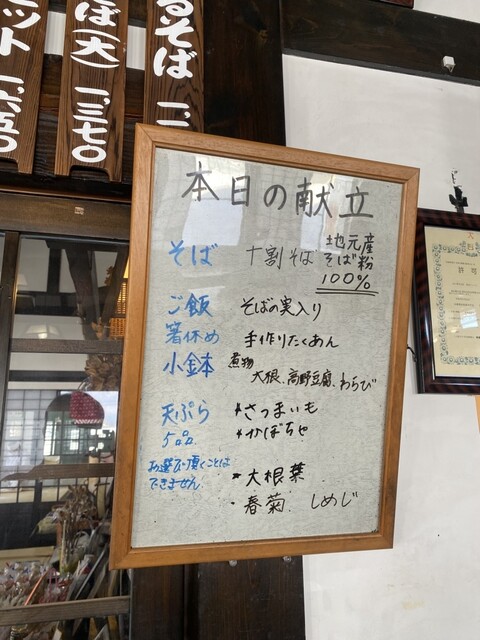 るそば 一、
ば(大) 一、三七〇
ット 一、六五〇
本日の献立
そば 十割そば 地元産
そば粉
100%
ご飯 そばの実入り
箸休め 手作りたくあん
小鉢 煮物
大根、高野豆腐、わらび
天ぷら *さつまいも
5品 *かぼちゃ
お選び頂くことは
できません
*大根葉
・春菊 しめじ